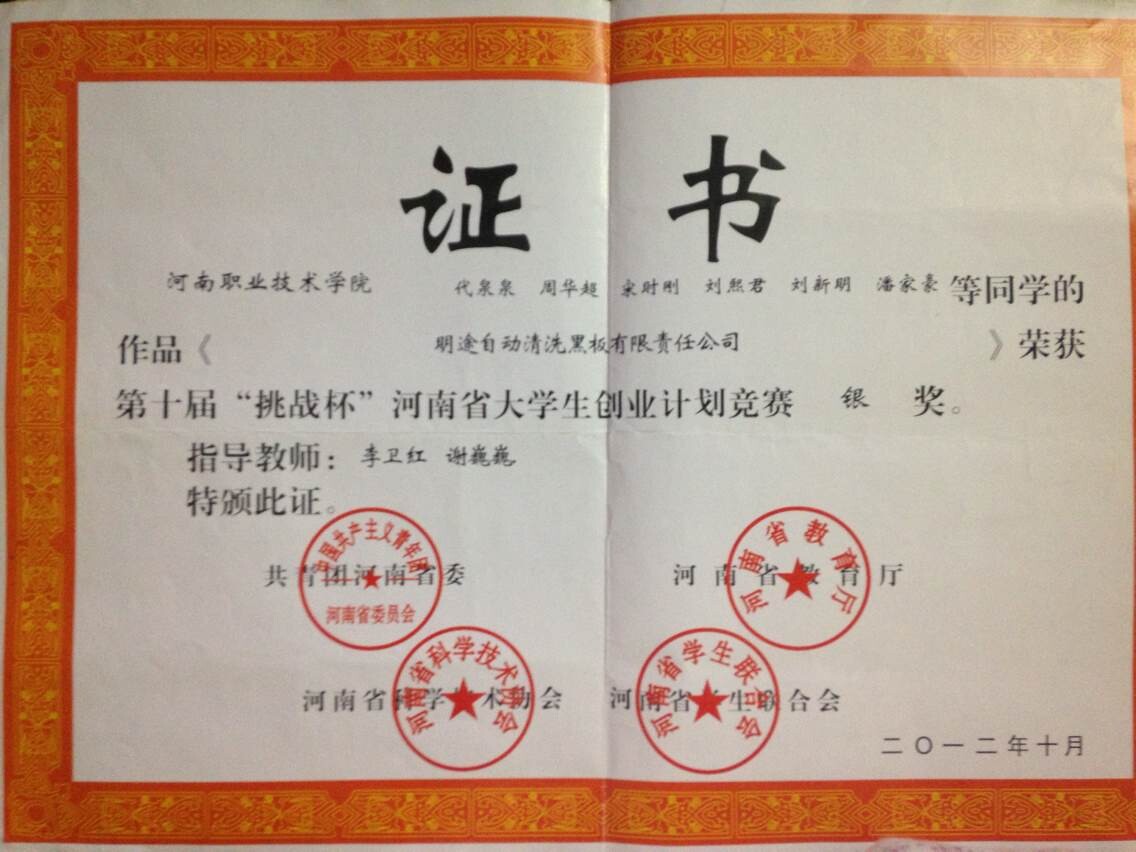 证书
河南职业技术学院 代泉泉 周华超 宋时刚 刘熙君 刘新明 潘家豪 等同学的
作品《 明途自动清洗黑板有限责任公司 》荣获
第十届“挑战杯”河南省大学生创业计划竞赛 银 奖。
指导教师：李卫红 谢巍巍
特颁此证。
共青团河南省委 河南省教育厅
中国共产主义青年团
河南省委员会
河南省教育厅
河南省科学技术协会 河南省学生联合会
河南省科学技术协会
河南省学生联合会
二〇一二年十月